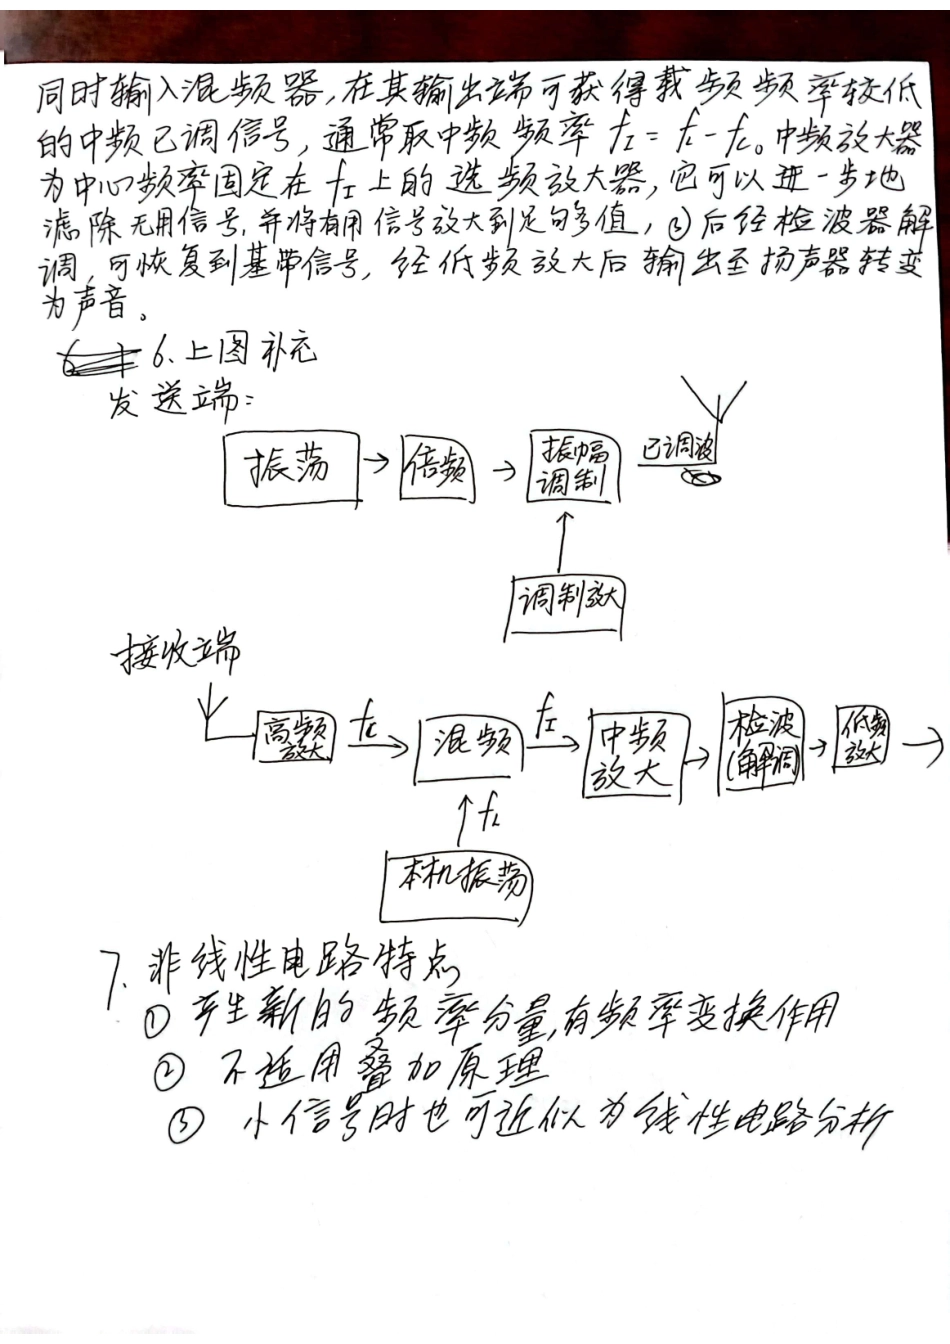 同时输入混频器,在其输出端可获得载频频率较低
的中频已调信号,通常取中频频率 fI = fL - fc。中频放大器
为中心频率固定在 fI 上的选频放大器,它可以进一步地
滤除无用信号,并将有用信号放大到足够多值,③后经检波器解
调,可恢复到基带信号,经低频放大后输出至扬声器转变
为声音。
6、上图补充
发送端:
振荡 → 倍频 → 振幅调制 已调波
↑
调制放大
接收端
高频放大 fc → 混频 fI → 中频放大 → 检波(解调) → 低频放大 →
↑ fL
本机振荡
7、非线性电路特点
① 产生新的频率分量,有频率变换作用
② 不适用叠加原理
③ 小信号时也可近似为线性电路分析